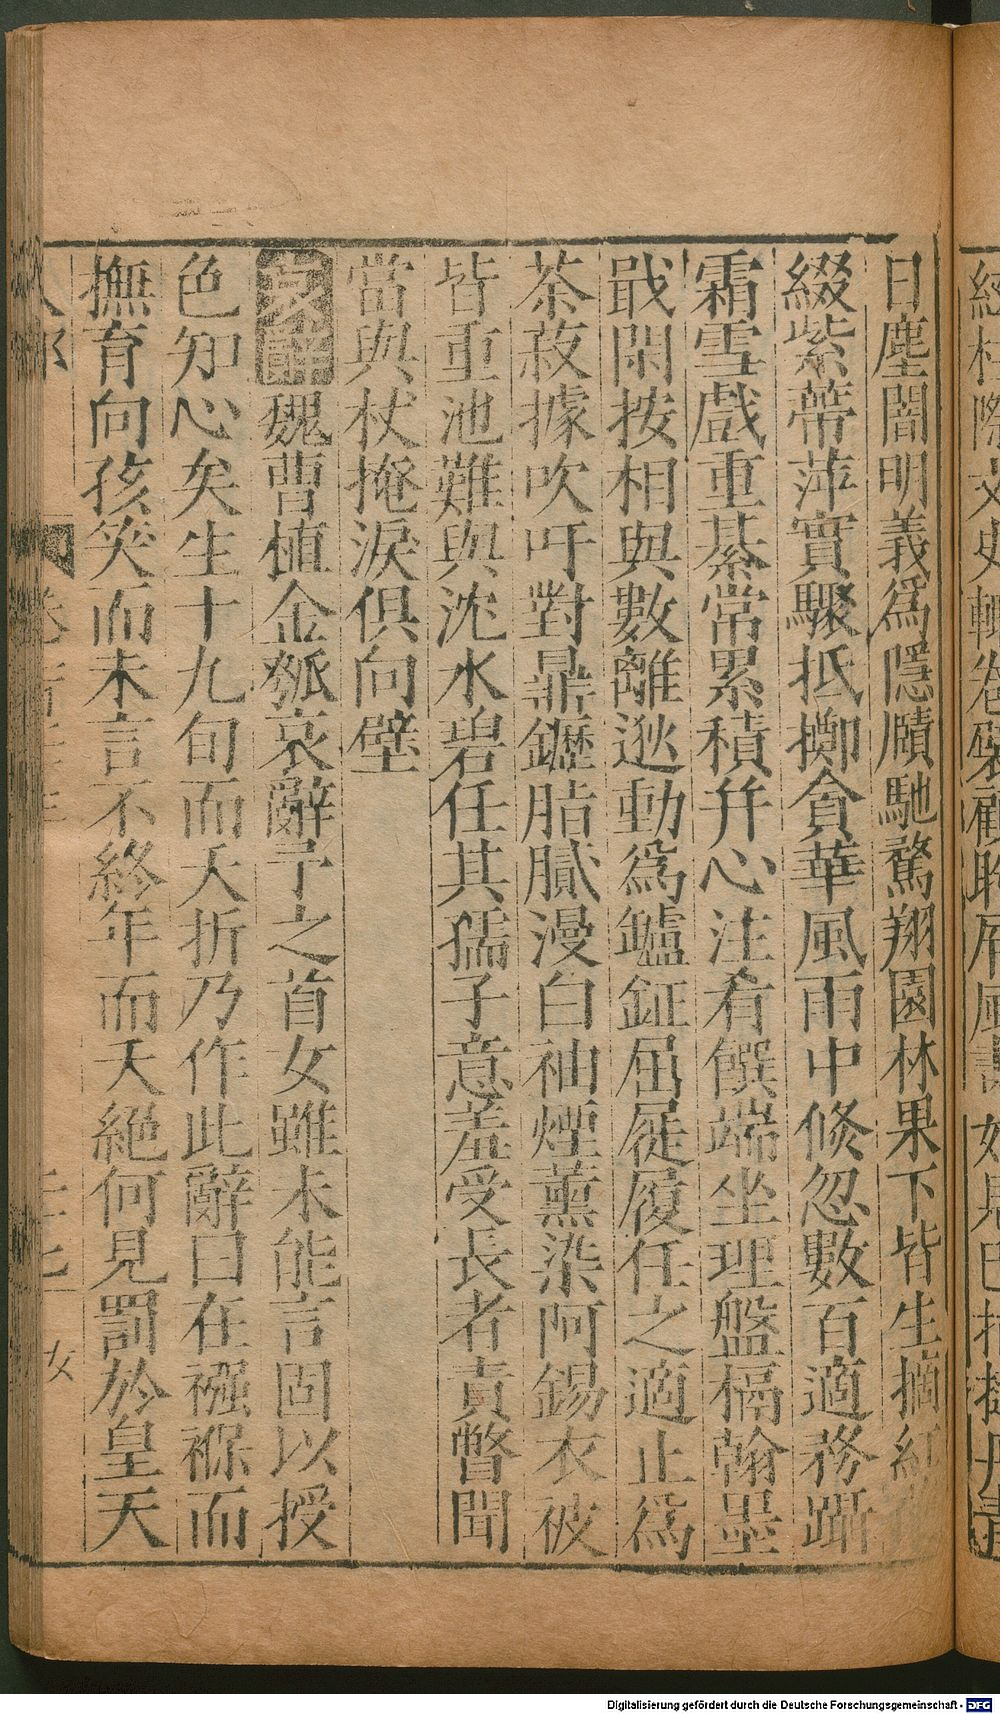 日塵闇明義爲隱賾馳騖翔園林果下皆生摘紅
綴紫蔕萍實驟抵擲貪華風雨中倐忽數百適務躡
霜雪戲重綦常累積幷心注肴饌端坐理盤槅翰墨
戢閑按相與數離逖動爲鑪鉦屈屣履任之適止爲
茶菽據吹吁對鼎䥶脂膩漫白袖煙薰染阿錫衣被
皆重池難與沈水碧任其孺子意羞受長者責瞥聞
當與杖掩淚俱向壁
哀辭魏曹植金瓠哀辭予之首女雖未能言固以授
色知心矣生十九旬而夭折乃作此辭曰在襁褓而
撫育向孩笑而未言不終年而夭絕何見罰於皇天
女
Digitalisierung gefördert durch die Deutsche Forschungsgemeinschaft - DFG